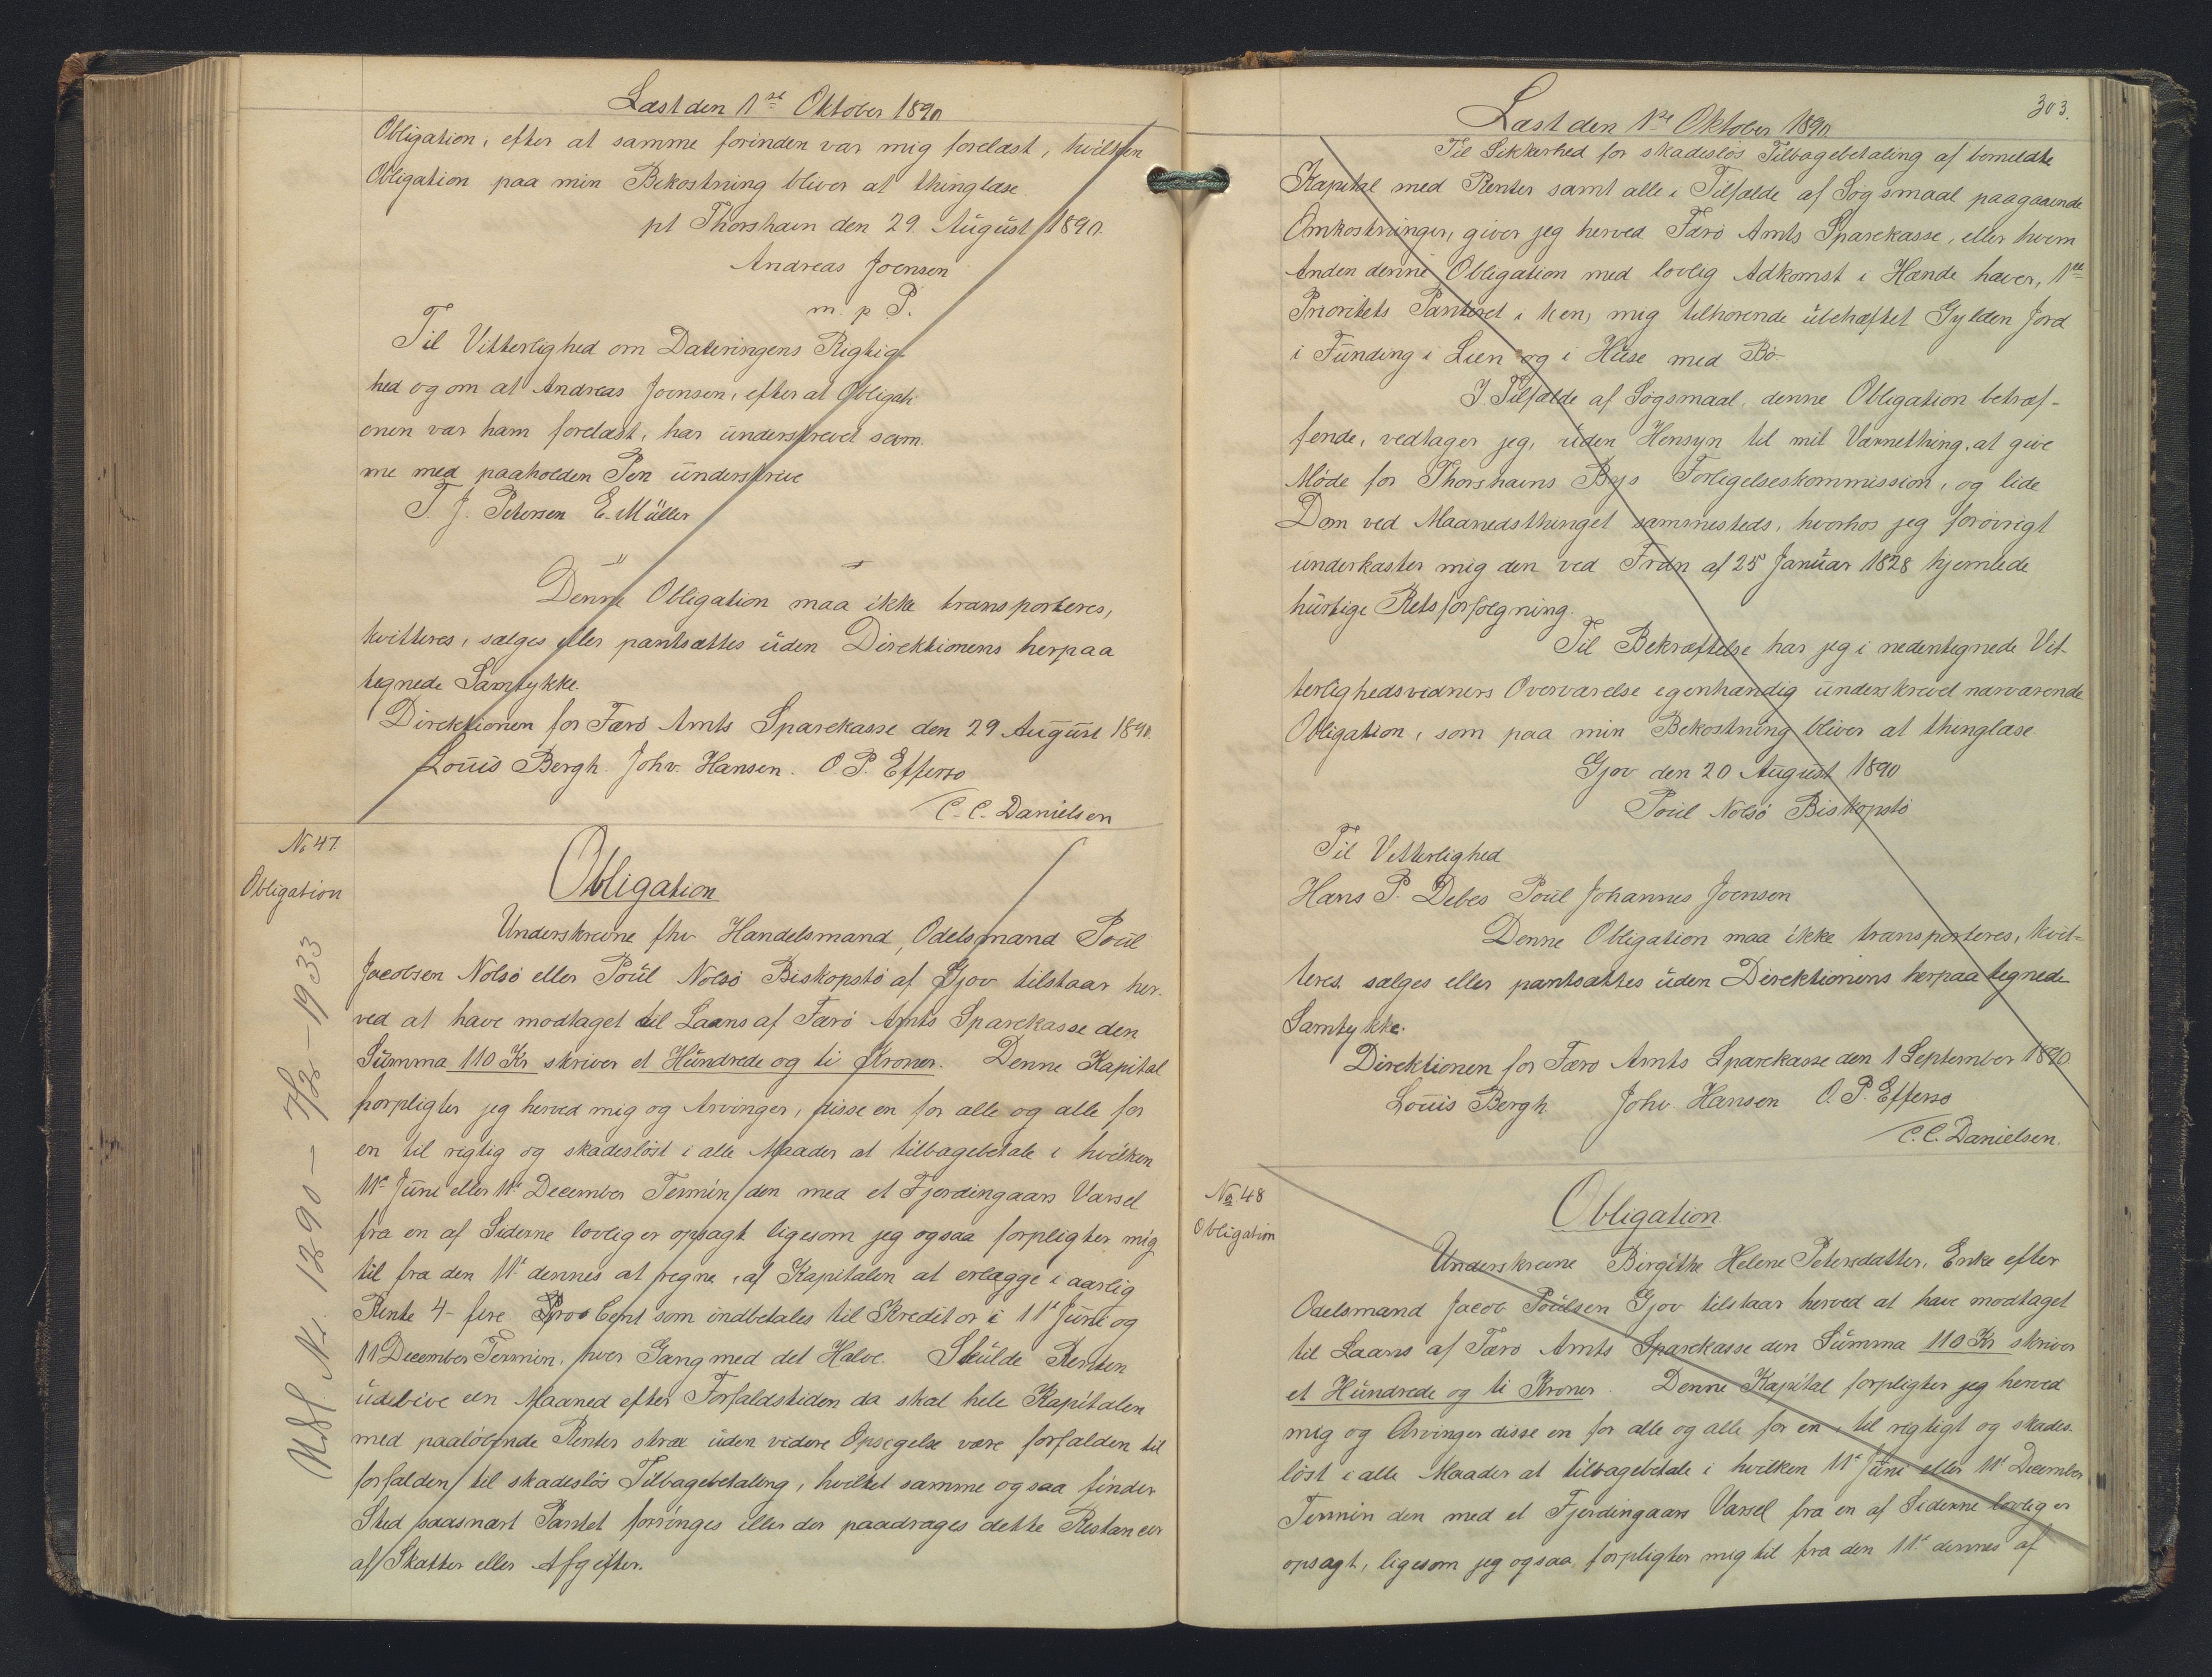 Læst den 1ste Oktober 1890
Obligation, efter at samme forinden var mig forelæst, hvilken
Obligation paa min Bekostning bliver at thinglæse
pt Thorshavn den 29 August 1890.
Andreas Joensen
m. p. P.
Til Vitterlighed om Dateringens Rigtig-
hed og om at Andreas Joensen, efter at Obligati-
onen var ham forelæst, har underskrevet sam-
me med paaholden Pen underskrive
T. J. Petersen E. Müller
Denne Obligation maa ikke transporteres,
kvitteres, sælges eller pantsættes uden Direktionens herpaa
tegnede Samtykke.
Direktionen for Færö Amts Sparekasse den 29 August 1890.
Louis Bergh. Johv. Hansen. O P. Effersö
C. C. Danielsen
No 47.
Obligation
Obligation
Underskrevne fhv Handelsmand, Odelsmand Poul
Jacobsen Nolsö eller Poul Nolsö Biskopstö af Gjov tilstaar her-
ved at have modtaget til Laans af Færö Amts Sparekasse den
Summa 110 Kr skriver et Hundrede og ti Kroner. Denne Kapital
forpligter jeg herved mig og Arvinger, disse en for alle og alle for
en til rigtig og skadeslöst i alle Maader at tilbagebetale i hvilken
11te Juni eller 11te December Termin den med et Fjerdingaars Varsel
fra en af Siderne lovlig er opsagt ligesom jeg ogsaa forpligter mig
til fra den 11te dennes at regne, af Kapitalen at erlægge i aarlig
Rente 4 - fire Pro Cent som indbetales til Kreditor i 11te Juni og
11 December Termin, hver Gang med det Halve. Skulde Renten
udebive een Maaned efter Forfaldstiden da skal hele Kapitalen
med paalöbende Renter strax uden videre Opsigelse være forfalden til
forfalden til skadeslös Tilbagebetaling, hvilket samme ogsaa finder
Sted saasnart Pantet forringes eller der paadrages dette Restancer
af Skatter eller Afgifter.
Udsl. No. 1290 - 7/2 - 1933
303.
Læst den 1ste Oktober 1890.
Til Sikkerhed for skadeslös Tilbagebetaling af bemeldte
Kapital med Renter samt alle i Tilfælde af Sögsmaal paagaaende
Omkostninger, giver jeg herved Færö Amts Sparekasse, eller hvem
Anden denne Obligation med lovlig Adkomst i Hænde haver, 1ste
Prioritets Panteret i 1 en, mig tilhörende ubehæftet Gylden Jord
i Funding i Lien og i Huse med Bö
I Tilfælde af Sögsmaal, denne Obligation betræf-
fende, vedtager jeg, uden Hensyn til mit Værnething, at give
Möde for Thorshavns Byes Forligelseskommission, og lide
Dom ved Maanedsthinget sammesteds, hvorhos jeg forövrigt
underkaster mig den ved Frdn af 25 Januar 1828 hjemlede
hurtige Retsforfölgning.
Til Bekræftelse har jeg i nedentegnede Vit-
terlighedsvidners Overværelse egenhændig underskrevet nærværende
Obligation, som paa min Bekostning bliver at thinglæse.
Gjov den 20 August 1890
Poul Nolsö Biskopstö
Til Vitterlighed
Hans P. Debes Poul Johannes Joensen
Denne Obligation maa ikke transporteres, kvit-
teres, sælges eller pantsættes uden Direktionens herpaa tegnede
Samtykke.
Direktionen for Færö Amts Sparekasse den 1 September 1890
Louis Bergh Johv. Hansen O. P. Effersö
C. C. Danielsen.
No 48
Obligation
Obligation
Underskrevne Birgithe Helene Petersdatter, Enke efter
Odelsmand Jacob Poulsen Gjov tilstaar herved at have modtaget
til Laans af Færö Amts Sparekasse den Summa 110 Kr skriver
et Hundrede og ti Kroner. Denne Kapital forpligter jeg herved
mig og Arvinger disse en for alle og alle for en, til rigtigt og skades-
löst i alle Maader at tilbagebetale i hvilken 11te Juni eller 11te December
Termin den med et Fjerdingaars Varsel fra en af Siderne lovlig er
opsagt, ligesom jeg ogsaa forpligter mig til fra den 11te dennes af